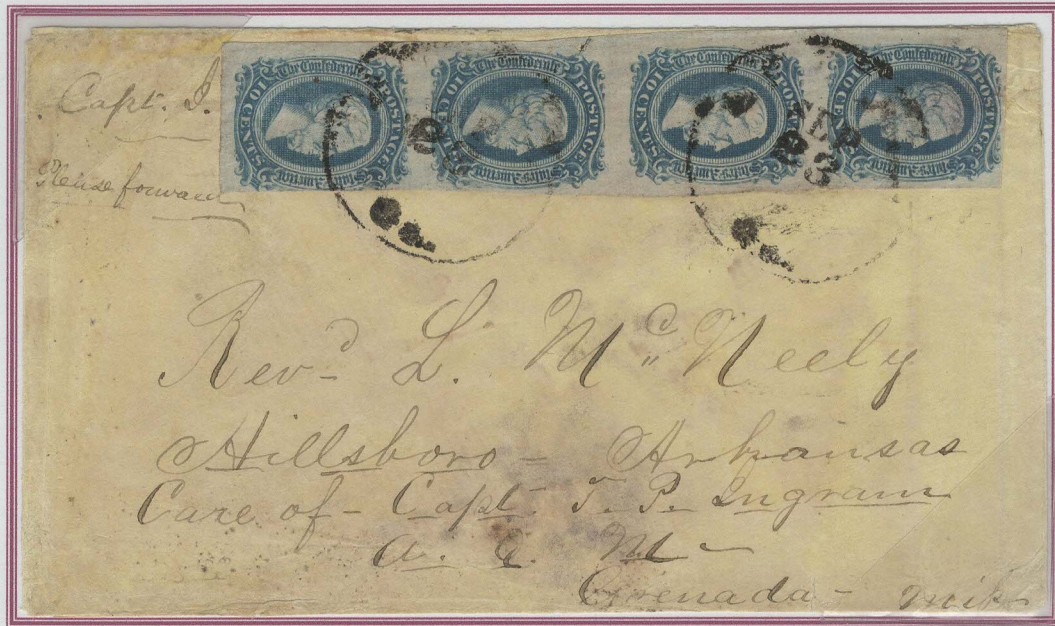 Capt. I
Please forward
The Confederate
States America
POSTAGE
10 CENTS
The Confederate
States America
POSTAGE
10 CENTS
The Confederate
States America
POSTAGE
10 CENTS
The Confederate
States America
POSTAGE
10 CENTS
SEP
3
Revd. L. McNeely
Hillsboro - Arkansas
Care of - Capt. T. P. Ingram
A. Q. M -
Grenada - Miss